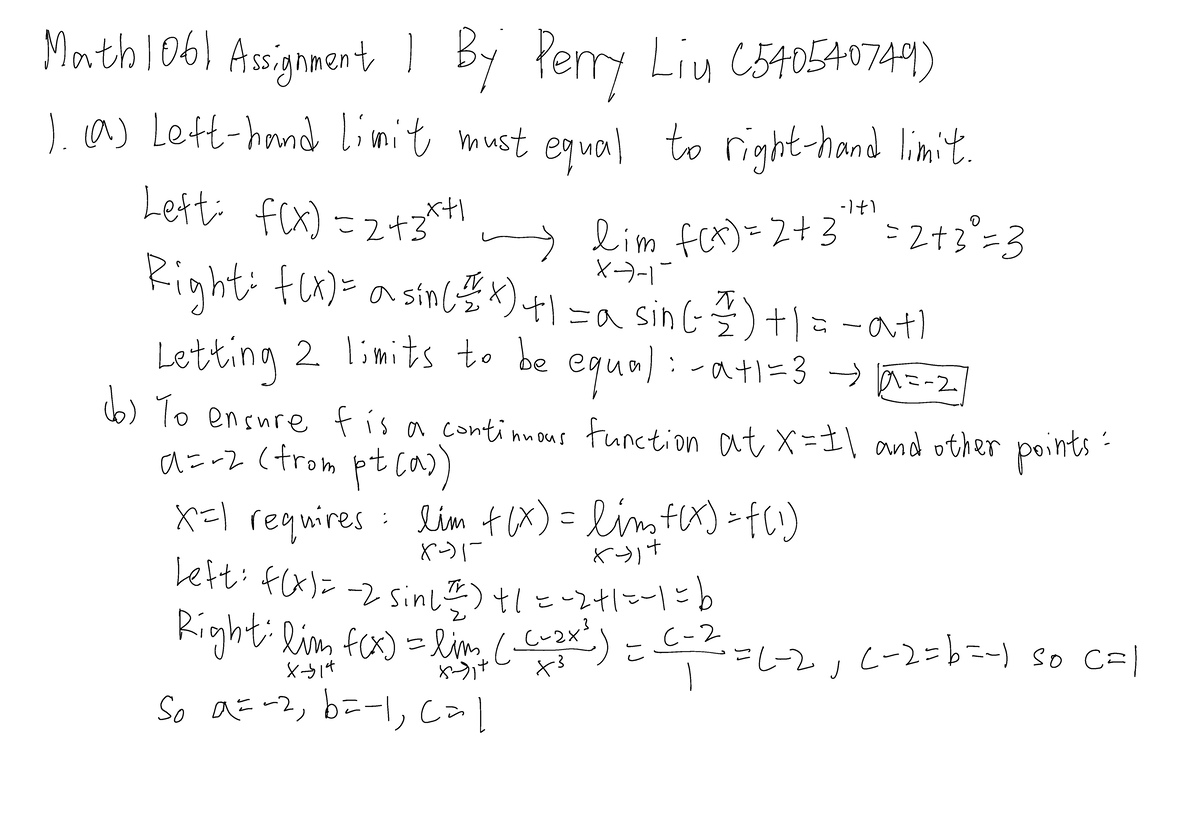 Math1061 Assignment 1 By Perry Liu (540540749)
1. (a) Left-hand limit must equal to right-hand limit.
Left: f(x) = 2+3^{x+1} → lim_{x→-1^-} f(x) = 2+3^{-1+1} = 2+3^0 = 3
Right: f(x) = a sin(π/2 x) +1 = a sin(-π/2) +1 = -a+1
Letting 2 limits to be equal: -a+1=3 → a=-2
(b) To ensure f is a continuous function at x=±1 and other points:
a=-2 (from pt(a))
x=1 requires: lim_{x→1^-} f(x) = lim_{x→1^+} f(x) = f(1)
Left: f(x) = -2 sin(π/2) +1 = -2+1=-1=b
Right: lim_{x→1^+} f(x) = lim_{x→1^+} ((c-2x^3)/x^3) = (c-2)/1 = c-2, c-2=b=-1 so c=1
So a=-2, b=-1, c=1